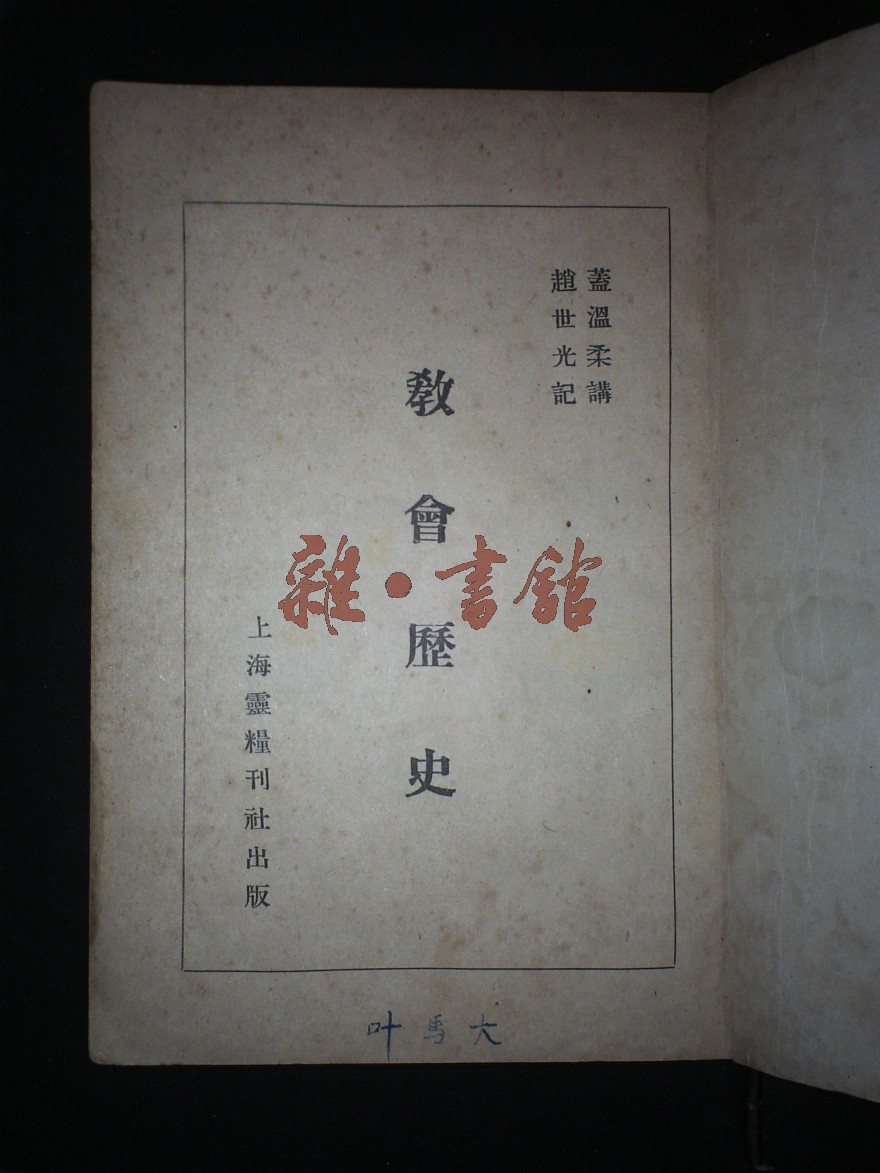 蓋溫柔講
趙世光記
教會歷史
上海靈糧刊社出版
雜·書館
叶馬大